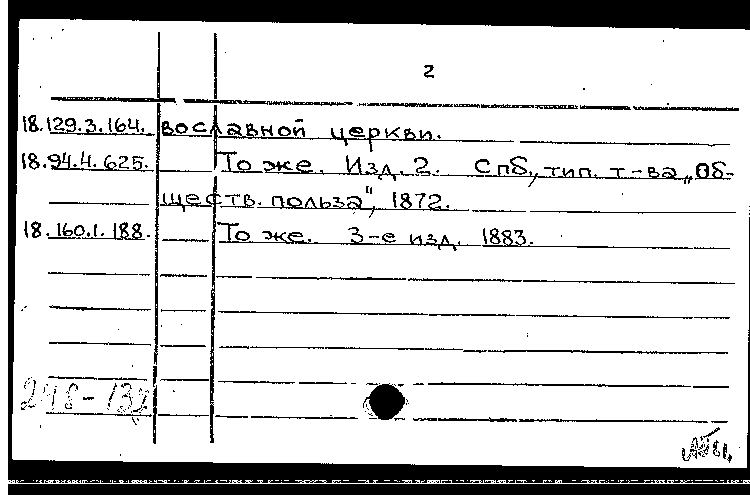 2
18.129.3.164. вославной церкви.
18.94.4.625. То же. Изд. 2. Спб., тип. т-ва „Об-
ществ. польза", 1872.
18.160.1.188. То же. 3-е изд. 1883.
248-132